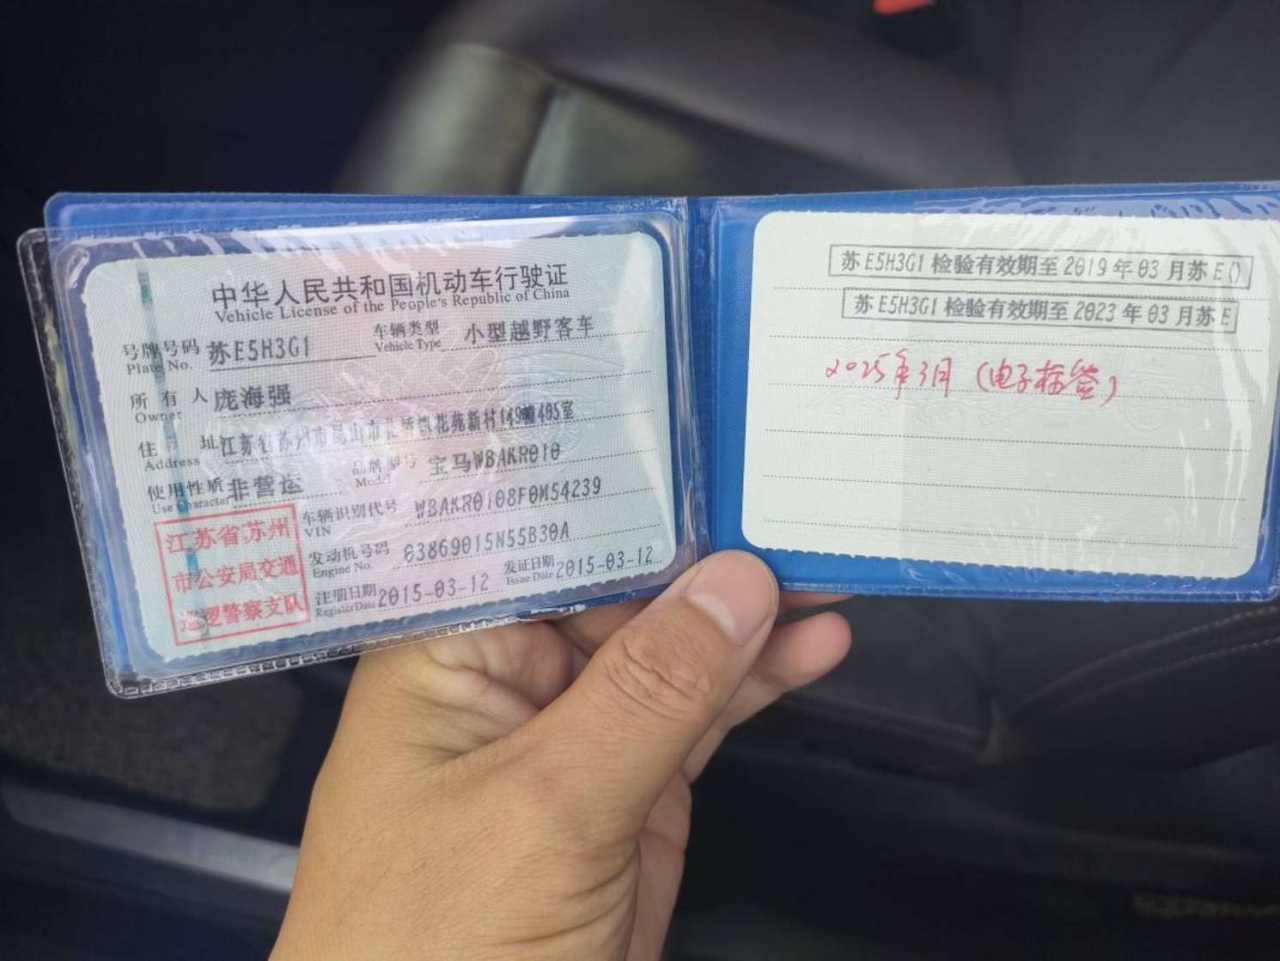 中华人民共和国机动车行驶证
Vehicle License of the People's Republic of China
号牌号码 苏E5H3G1 车辆类型 小型越野客车
Plate No. Vehicle Type
所有人 庞海强
Owner
住址 江苏省苏州市昆山市 花苑新村149 405室
Address
使用性质 非营运 品牌型号 宝马WBAKR010
Use Character Model
车辆识别代号 WBAKR0108F0M54239
VIN
发动机号码 03869015N55B30A
Engine No.
注册日期 2015-03-12 发证日期 2015-03-12
Register Date Issue Date
江苏省苏州
市公安局交通
巡逻警察支队
苏E5H3G1 检验有效期至2019年03月苏E()
苏E5H3G1 检验有效期至2023年03月苏E
2025年3月(电子标签)